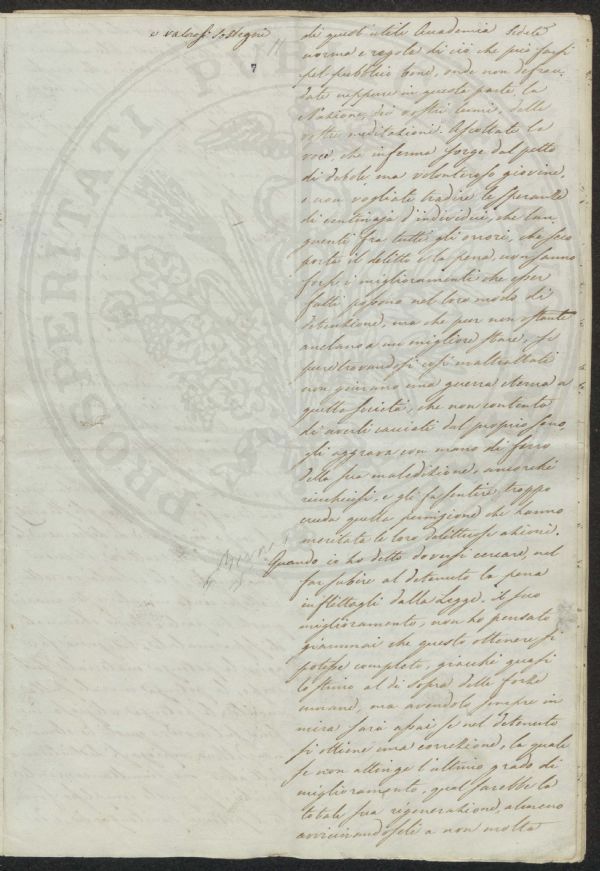 e valorosi sostegni
7
di quest'utile Accademia siate
norma e regola di ciò che può farsi
pel pubblico bene, onde non defrau-
date neppure in questa parte la
Nazione dei vostri lumi, delle
vostre meditazioni. Ascoltate la
voce, che inferma sorge dal petto
di debole ma volonteroso giovine,
e non vogliate tradire le speranze
di centinaja d'individui, che lan-
guenti fra tutti gli orrori, che seco
porta il delitto e la pena, non sanno
forse i miglioramenti che esser
fatti possono nel loro modo di
detenzione, ma che pur non ostante
anelano a un migliore stare, se
pure trovandosi così maltrattati
non giurano una guerra eterna a
quella società, che non contenta
di averli cacciati dal proprio seno,
gli aggrava con mano di ferro
della sua maledizione, ancorchè
rinchiusi, e gli fa sentire troppo
cruda quella punizione che hanno
meritata le loro delittuose azioni.
Quando io ho detto doversi cercare, nel
far subire al detenuto la pena
inflittagli dalla Legge, il suo
miglioramento, non ho pensato
giammai che questo ottenere si
potesse completo, giacchè quasi
lo stimo al di sopra delle forze
umane, ma avendolo sempre in
mira sarà assai se nel detenuto
si ottiene una correzione, la quale
se non attinge l'ultimo grado di
miglioramento, qual sarebbe la
totale sua rigenerazione, almeno
avvicinandosele a non molta
PROSPERITATI PUBLICAE